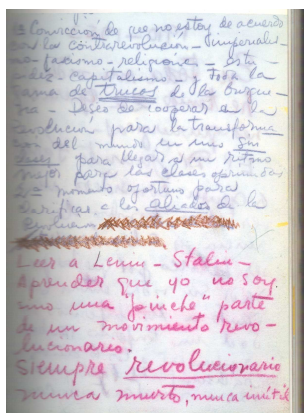 1º Convicción de que no estoy de acuerdo
con la contrarrevolución – imperialis-
mo – fascismo – religiones – estu-
pidez – capitalismo – y toda la
gama de trucos de la burgue-
sia – Deseo de cooperar en la
Revolución para la transforma
cion del mundo en uno sin
clases para llegar a un ritmo
mejor para las clases oprimidas
2º momento oportuno para
clarificar a los aliados de la
Revolucion
Leer a Lenin – Stalin –
Aprender que yo no soy
sino una "pinche" parte
de un movimiento revo-
lucionario.
Siempre revolucionario
nunca muerto, nunca inútil